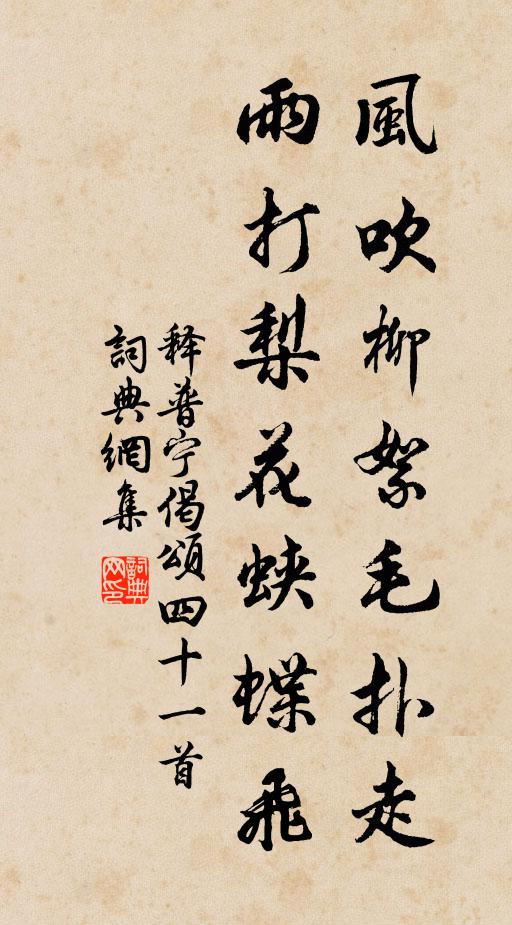 風吹柳絮毛扑走
雨打梨花蛺蝶飛
释普宁偈頌四十一首
詞典網集
詞典
网印